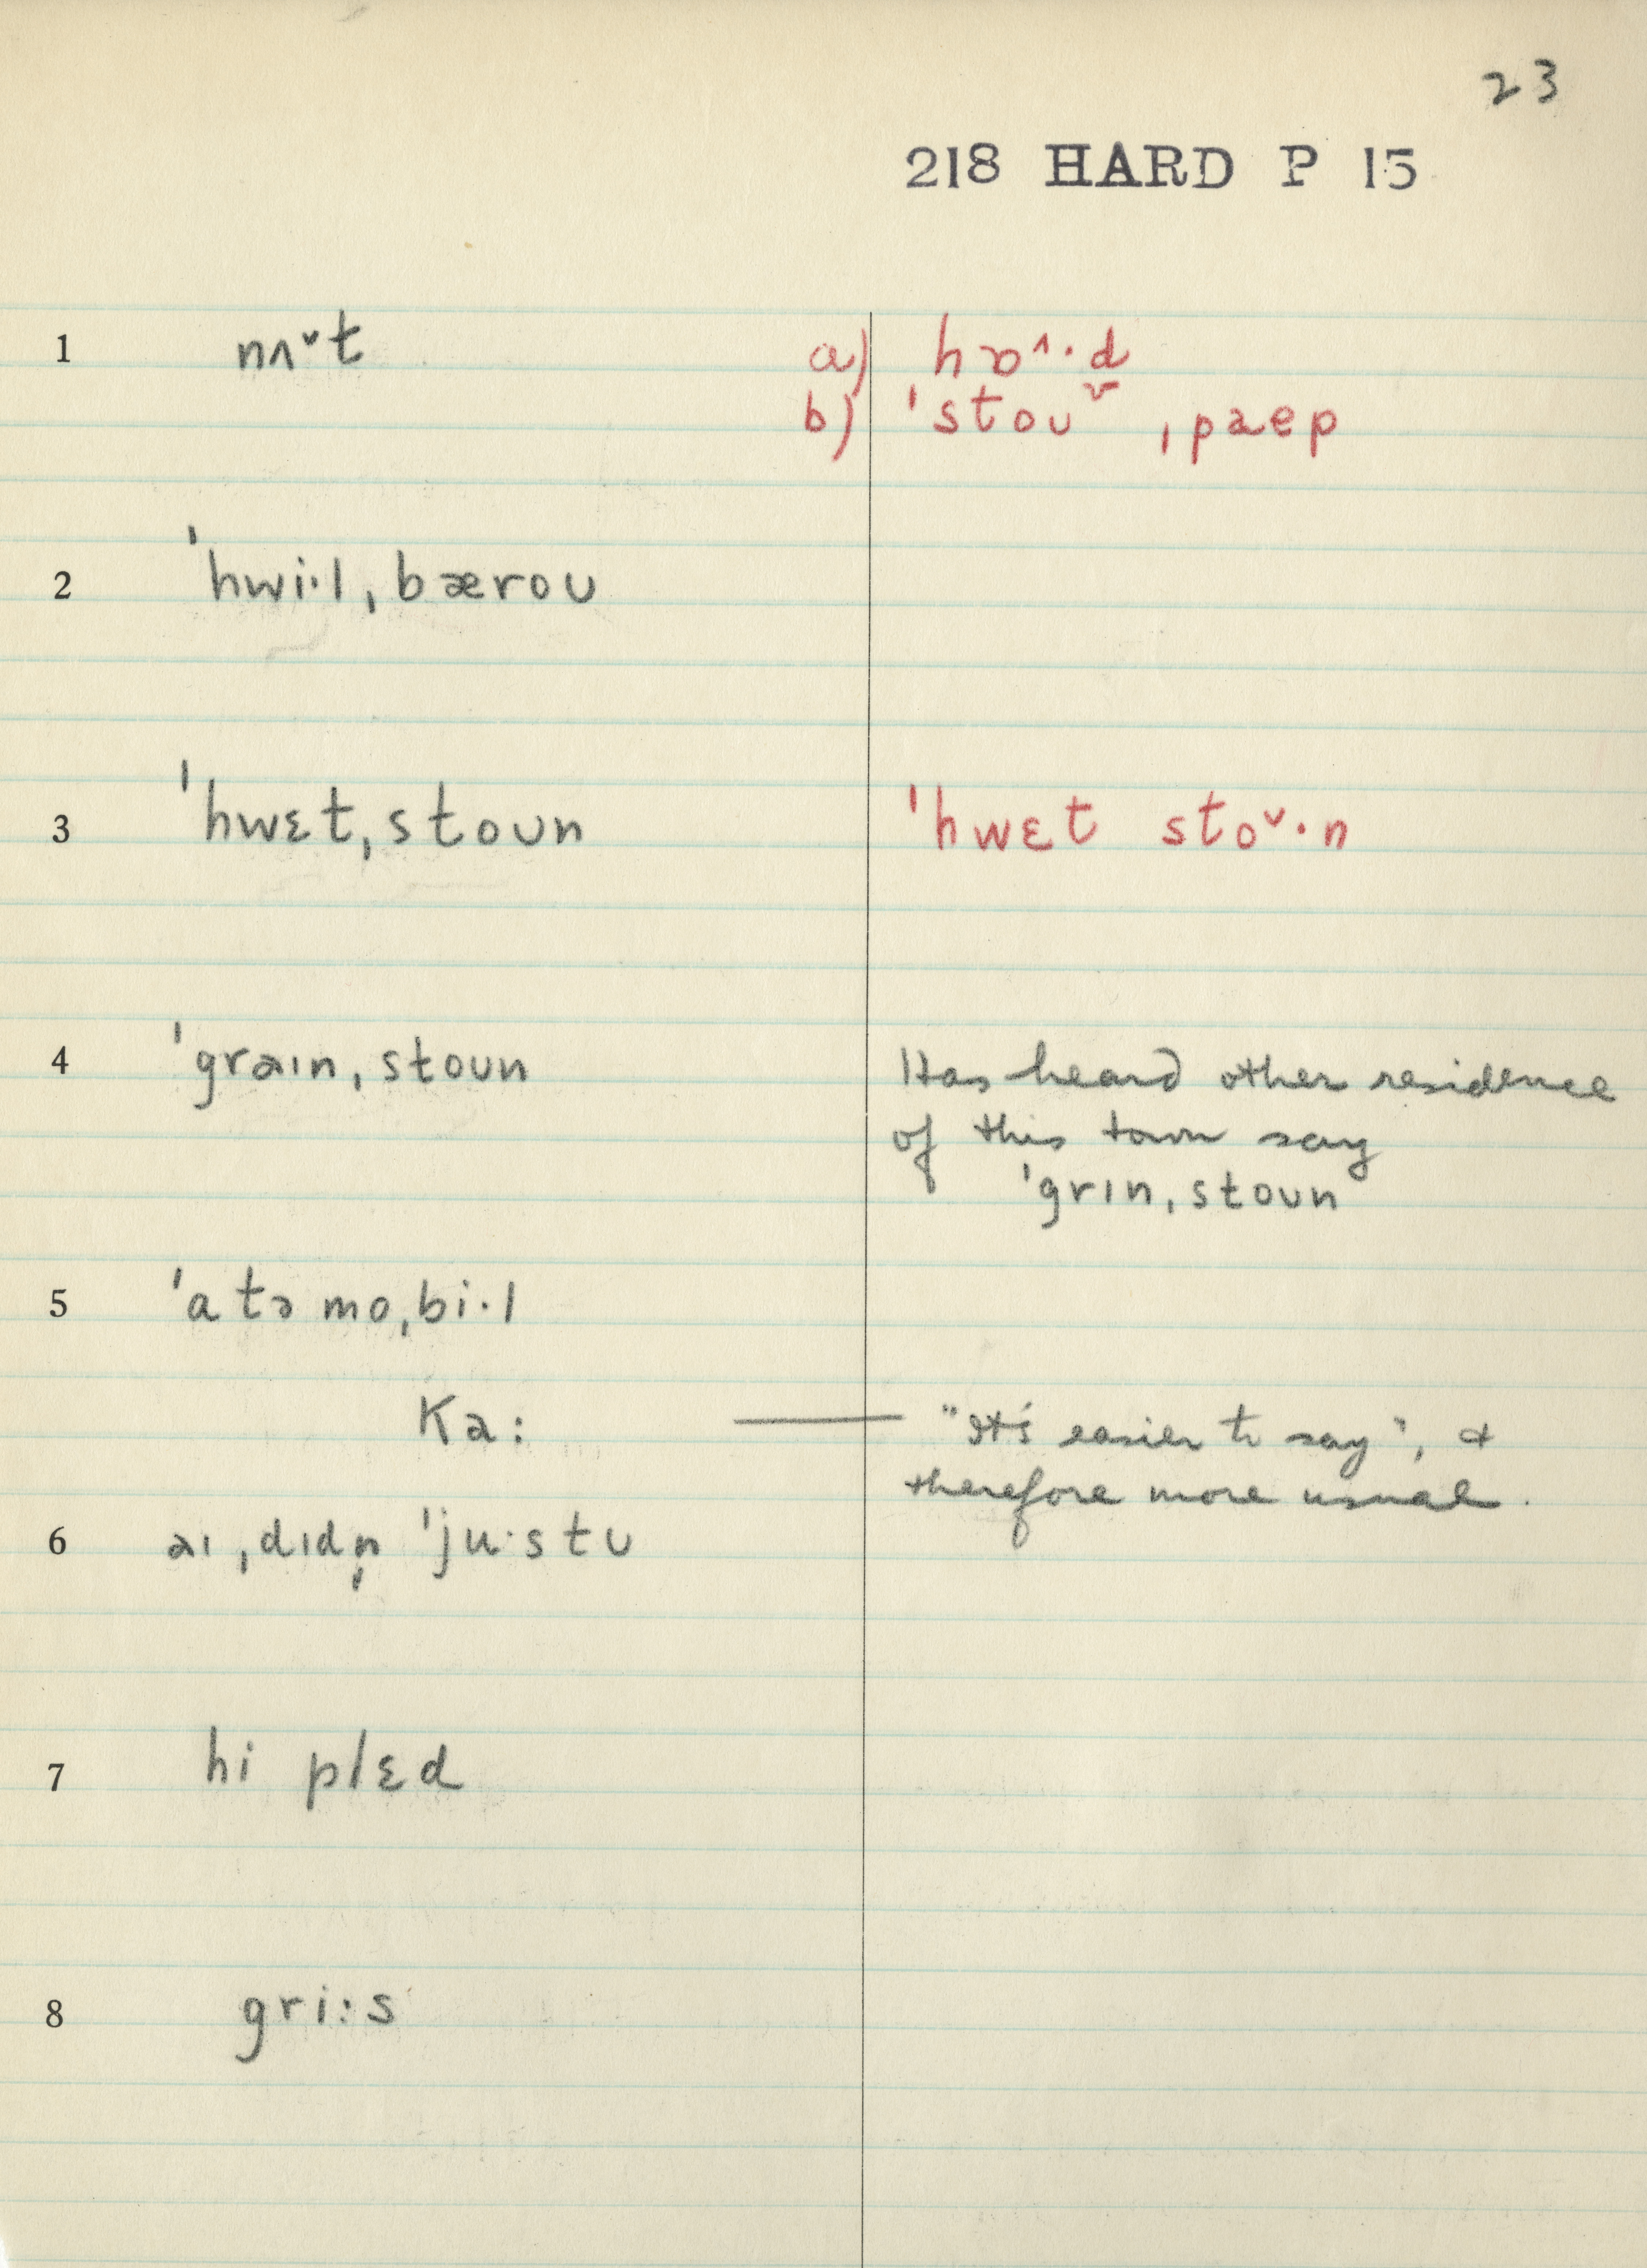 23
218 HARD P 15
1 nʌ˅t a) hɒ˄·d
b) ˈstoʊ˅ ˌpaɐp
2 ˈhwi·l ˌbæroʊ
3 ˈhwɛt ˌstoʊn ˈhwɛt sto˅·n
4 ˈgraɪn ˌstoʊn Has heard other residence
of this town say
ˈgrɪn ˌstoʊn
5 ˈatə mo ˌbi·l
Ka: — "It's easier to say", &
therefore more usual.
6 aɪ ˌdɪdn̩ ˈju·stʊ
7 hi plɛd
8 gri:s